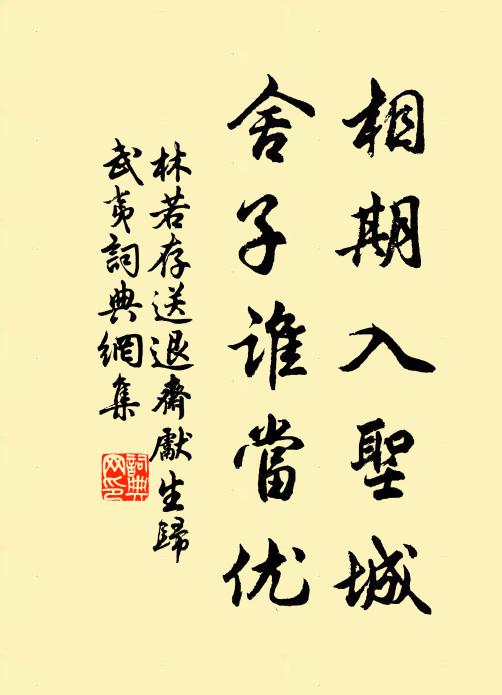 相期入聖城
舍子谁當优
林若存送退齋獻生歸
武夷詞典網集
詞典网印